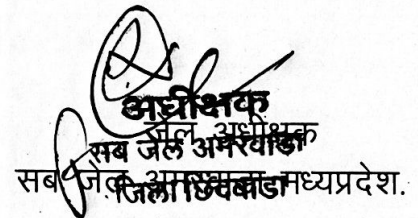 अधीक्षक
जेल अधीक्षक
सब जेल अमरवाडा
सब जेल अमरवाडा मध्यप्रदेश.
जिला छिंदवाडा